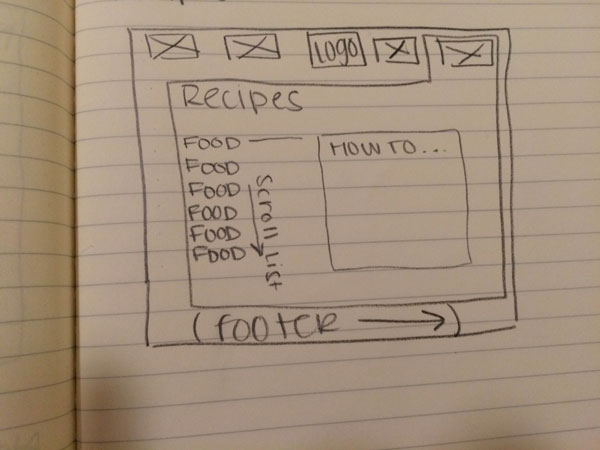 Logo
Recipes
FOOD
FOOD
FOOD
FOOD
FOOD
FOOD
Scroll List
HOW TO...
(FOOTER)